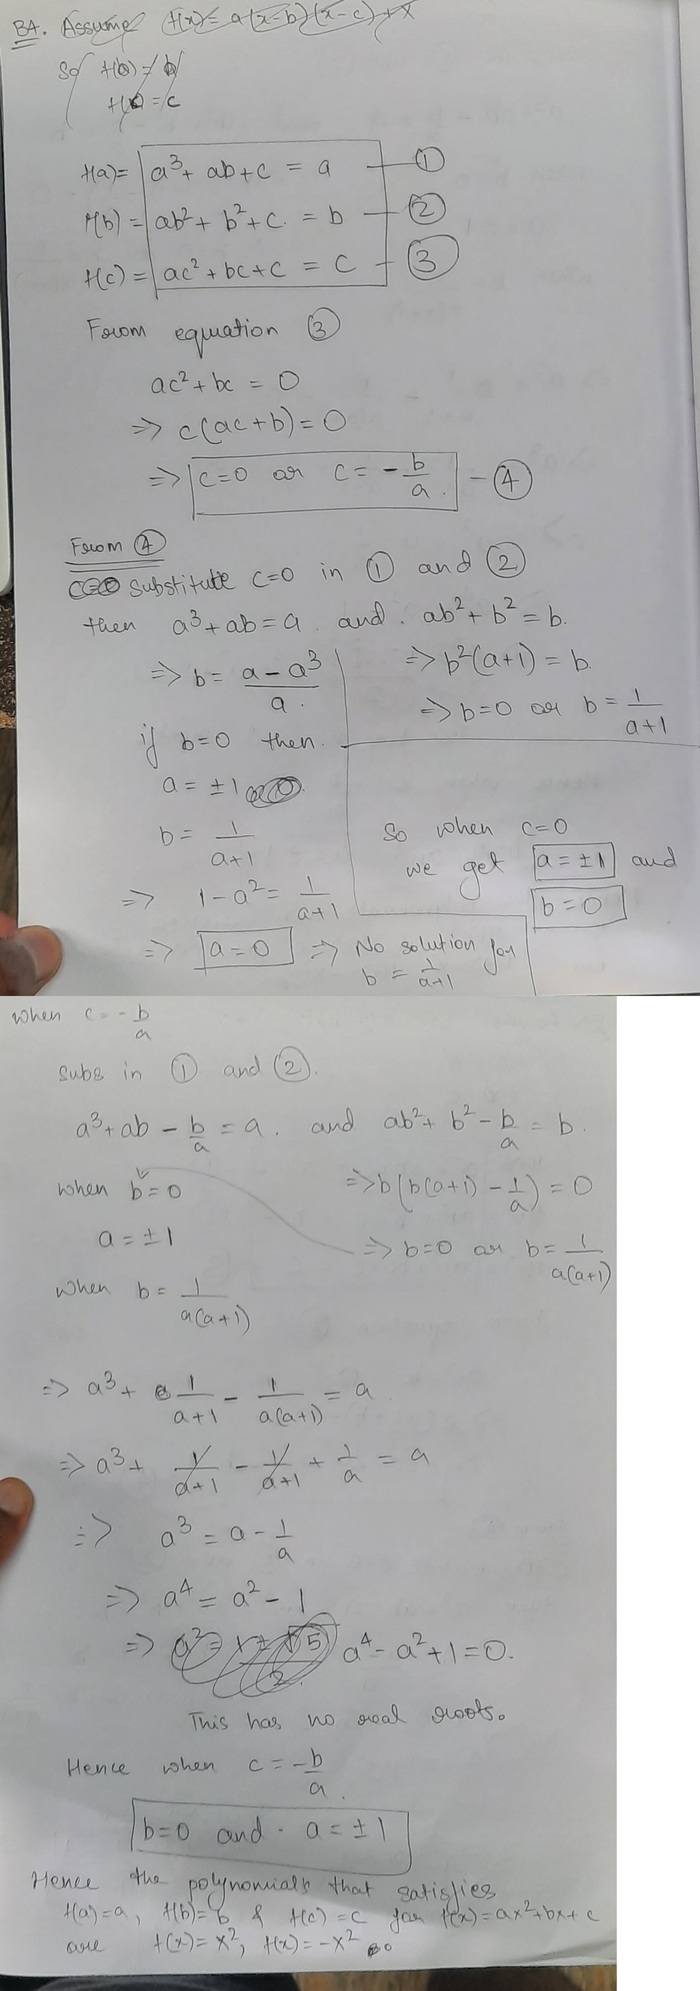 B4. Assume f(x) = a(x-b)(x-c)+x
So f(b) = b
f(c) = c
f(a) = a³ + ab + c = a — ①
f(b) = ab² + b² + c = b — ②
f(c) = ac² + bc + c = c — ③
From equation ③
ac² + bc = 0
⇒ c(ac+b) = 0
⇒ c=0 or c = -b/a. — ④
From ④
Substitute c=0 in ① and ②
then a³ + ab = a. and. ab² + b² = b.
⇒ b = (a - a³)/a.
⇒ b²(a+1) = b.
⇒ b=0 or b = 1/(a+1)
if b=0 then.
a = ±1
b = 1/(a+1)
⇒ 1-a² = 1/(a+1)
⇒ a=0 ⇒ No solution for b = 1/(a+1)
So when c=0
we get a=±1 and
b=0
when c = -b/a
Subs in ① and ②.
a³ + ab - b/a = a. and ab² + b² - b/a = b.
when b=0
⇒ b(b(a+1) - 1/a) = 0
a = ±1
⇒ b=0 or b = 1/(a(a+1))
when b = 1/(a(a+1))
⇒ a³ + 1/(a+1) - 1/(a(a+1)) = a
⇒ a³ + 1/(a+1) - 1/(a+1) + 1/a = a
⇒ a³ = a - 1/a
⇒ a⁴ = a² - 1
⇒ a⁴ - a² + 1 = 0.
This has no real roots.
Hence when c = -b/a.
b=0 and. a=±1
Hence the polynomials that satisfies
f(a)=a, f(b)=b & f(c)=c for f(x)=ax²+bx+c
are f(x)=x², f(x)=-x²